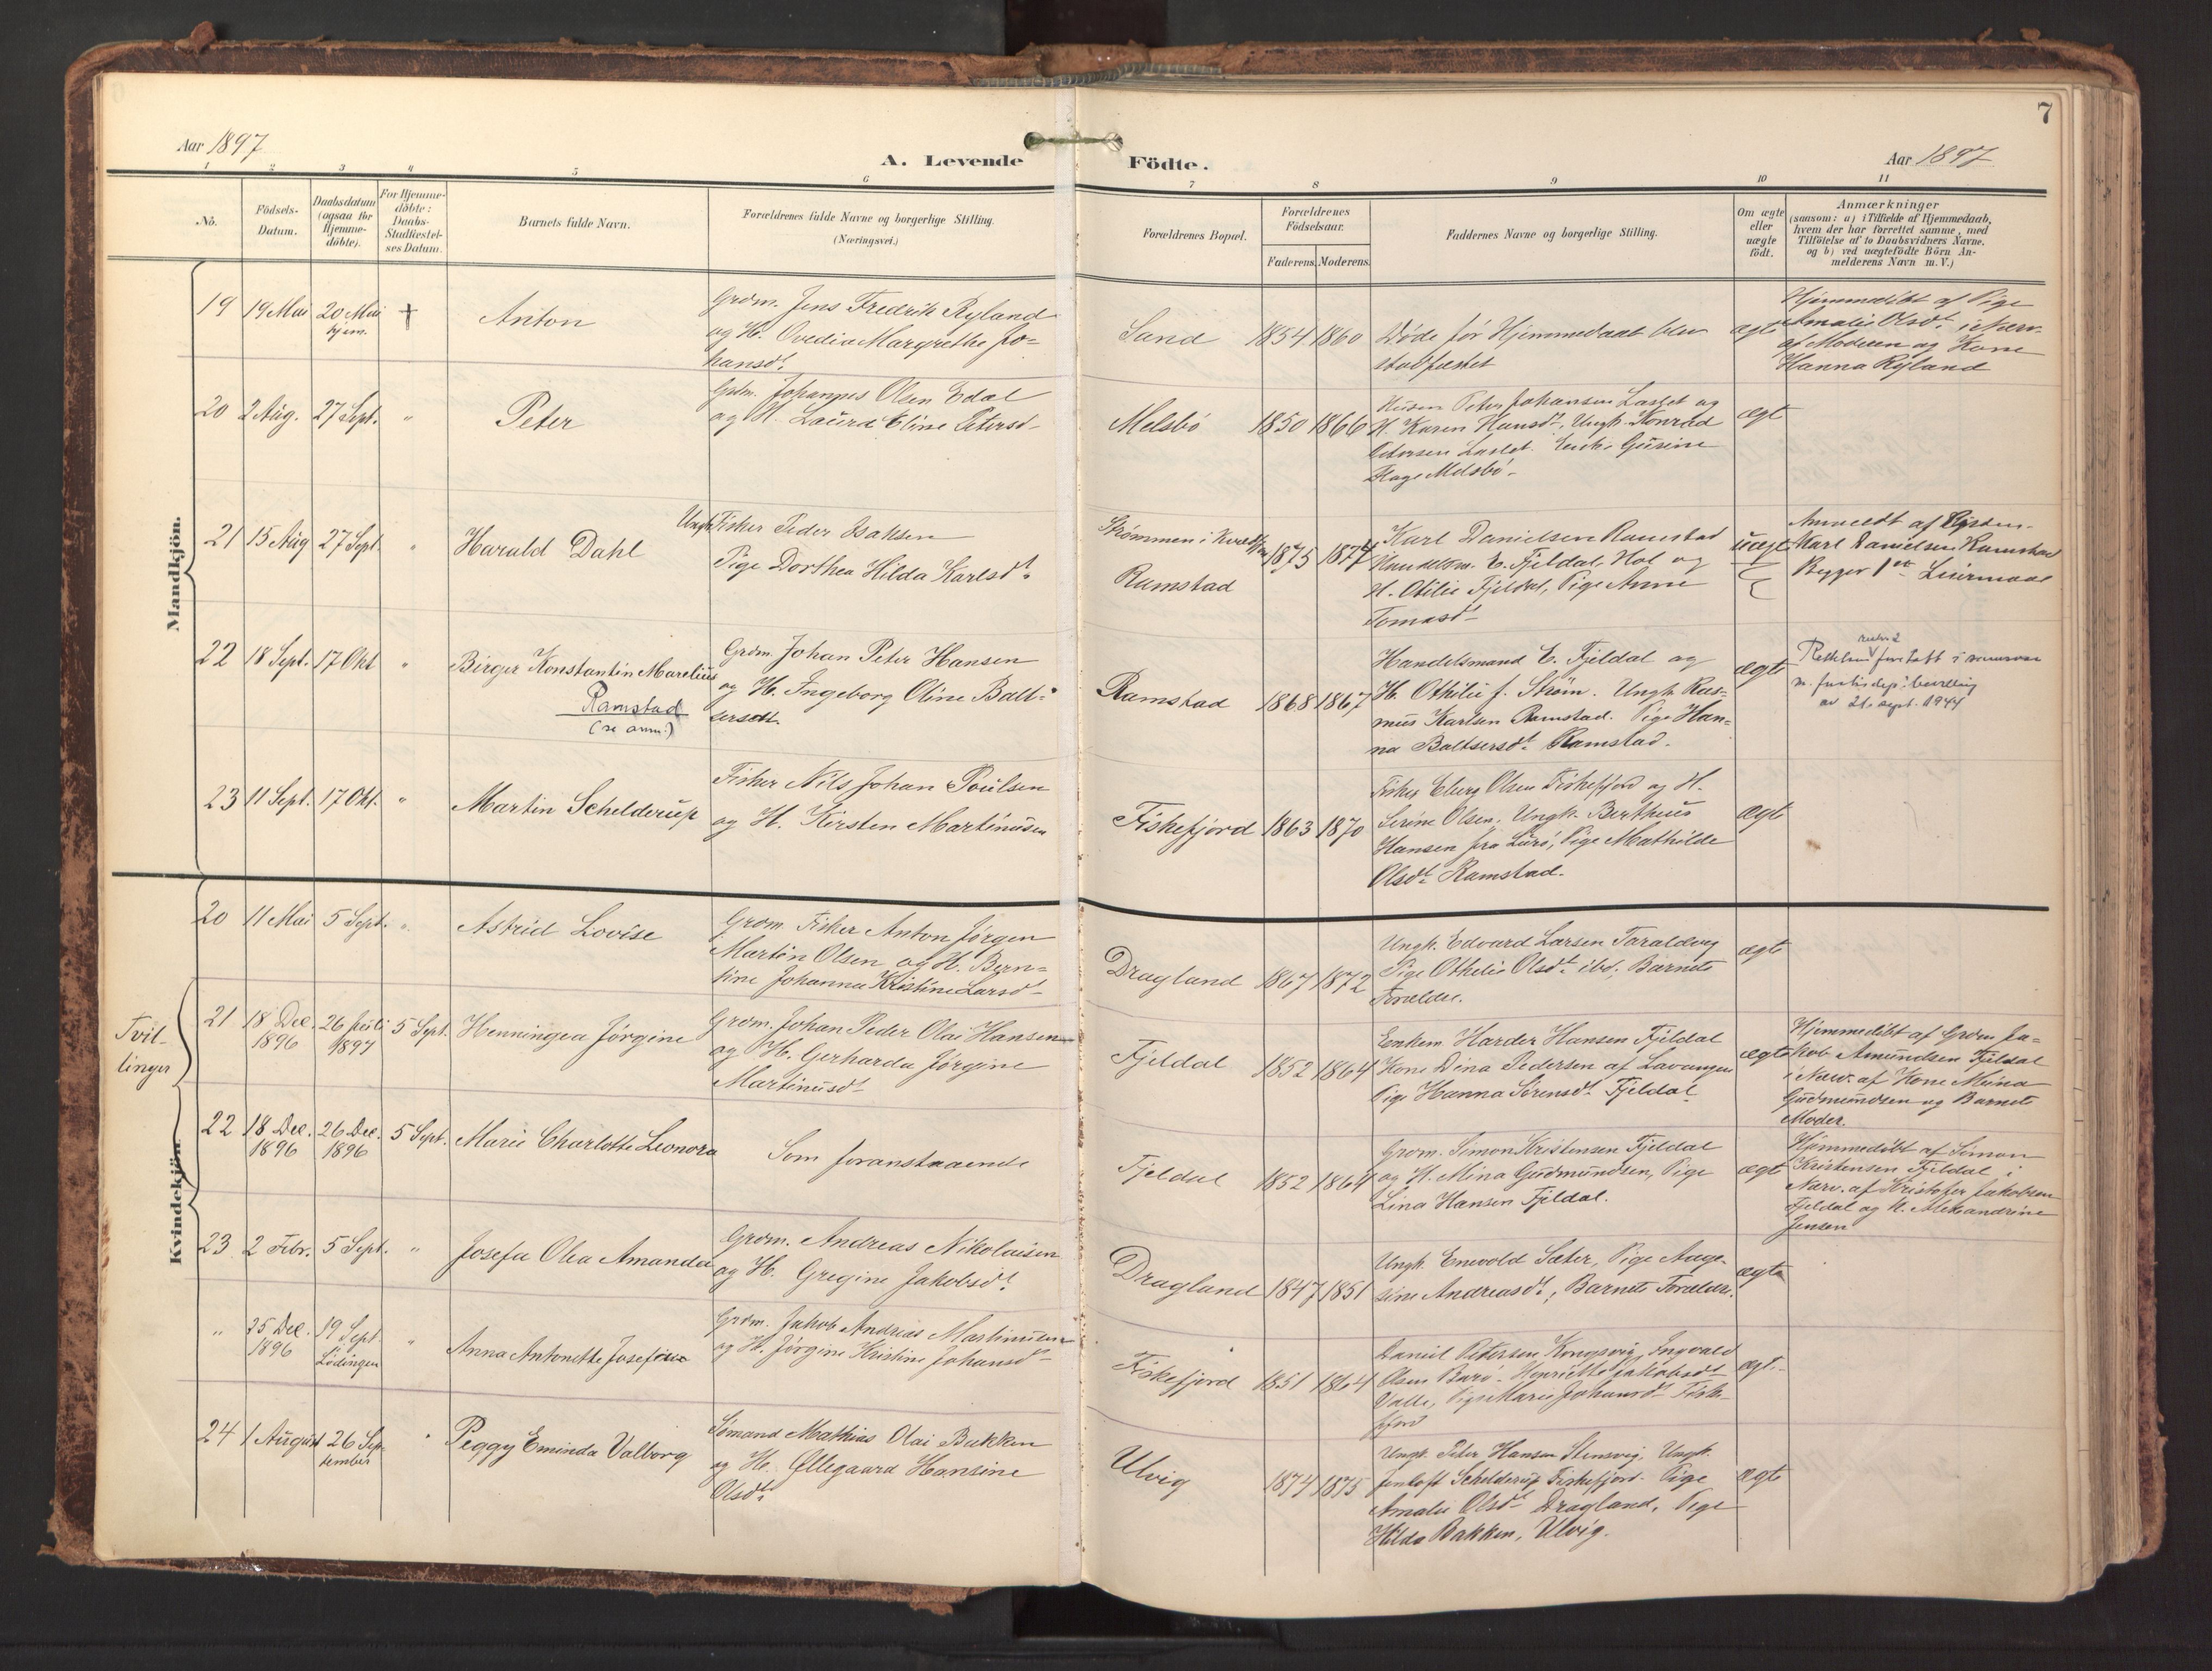 7
Aar 1897
A. Levende Födte.
Aar 1897
1 2 3 4 5 6 7 8 9 10 11
No.
Födsels-
Datum.
Daabsdatum
(ogsaa for
Hjemme-
döbte).
For Hjemme-
döbte:
Daabs-
Stadfæstel-
ses Datum.
Barnets fulde Navn.
Forældrenes fulde Navne og borgerlige Stilling.
(Næringsvei.)
Forældrenes Bopæl.
Forældrenes
Födselsaar.
Faderens. Moderens.
Faddernes Navne og borgerlige Stilling.
Om ægte
eller
uægte
födt.
Anmærkninger
(saasom: a) i Tilfælde af Hjemmedaab,
hvem der har forrettet samme, med
Tilföielse af to Daabsvidners Navne,
og b) ved uægtefödte Börn An-
melderens Navn m. V.)
Mandkjön.
19 19 Mai 20 Mai
hjem.
†
Anton
Grdm. Jens Fredrik Ryland
og H. Ovedia Margrethe Jo-
hansdt.
Sand 1854 1860
Døde før Hjemmedaab blev
stadfæstet
ægte
Hjemmedöbt af Pige
Amalie Olsdt. i Nærv.
af Moderen og Kone
Hanna Ryland
20 2 Aug. 27 Sept. "
Peter
Grdm. Johannes Olsen Edal
og H. Laura Eline Petersdt.
Melsbö 1850 1866
Peter Johansen Laslet og
H. Karen Hansdt., Ungk. Konrad
Petersen Laslet. Enke Gusine
Hage Melsbö.
ægt
21 15 Aug 27 Sept. "
Harald Dahl
Ungk. Fisker Peder Isaksen
Pige Dorthea Hilda Karlsdt.
Strømmen i
Ramstad
1875 1874
Karl Danielsen Ramstad
Handelsm. E. Fjeldal, Hol og
H. Otilie Fjeldal, Pige Anne
Tomasdt.
uægt
Anmeldt af
Karl Danielsen Ramstad
Begges 1ste Leiermaal
22 18 Sept. 17 Okt "
Birger Konstantin Marelius
Ramstad
(se anm.)
Grdm. Johan Peter Hansen
og H. Ingeborg Oline Balt-
sersdt.
Ramstad 1868 1867
Handelsmand E. Fjeldal og
H. Othilie f. Strøm. Ungk. Ras-
mus Karlsen Ramstad. Pige Han-
na Baltsersdt. Ramstad.
ægte
foretatt i
m. justisdep. bevilling
av 21. sept. 1944
23 11 Sept. 17 Okt. "
Martin Schelderup
Fisker Nils Johan Poulsen
og H. Kirsten Martinusen
Fiskefjord 1863 1870
Fisker Eberg Olsen Fiskefjord og H.
Serine Olsen, Ungk. Bertheus
Hansen fra Lurö, Pige Mathilde
Olsdt. Ramstad.
ægte
Kvindekjön.
20 11 Mai 5 Sept. "
Astrid Lovise
Grdm. Fisker Anton Jørgen
Martin Olsen og H. Bern-
tine Johanna Kristine Larsdt.
Dragland 1867 1872
Ungk. Edvard Larsen Taraldvig
Pige Othelie Olsdt. ibd. Barnets
Forældre.
ægte
Tvil-
linger
21 18 Dec.
1896
26 Juli
1897
5 Sept.
Henningea Jørgine
Grdm. Johan Peder Olai Hansen
og H. Gerharda Jørgine
Martinusdt
Fjeldal 1852 1864
Enkem. Harder Hansen Fjeldal
Kone Dina Pedersen af Lavangen
Pige Hanna Sørensdt. Fjeldal.
ægte
Hjemmedöbt af Grdm Ja-
kob Amundsen Fjeldal
i Nærv. af Kone Mina
Gudmundsen og Barnets
Moder.
22 18 Dec.
1896
26 Dec.
1896
5 Sept.
Marie Charlotte Leonora
Som foranstaaende
Fjeldal 1852 1864
Grdm. Simon Kristensen Fjeldal
og H. Mina Gudmundsen, Pige
Lina Hansen Fjeldal.
ægte
Hjemmedöbt af Simon
Kristensen Fjeldal i
Nærv. af Kristofer Jakobsen
Fjeldal og H. Alexandrine
Jensen
23 2 Febr. 5 Sept. "
Josefa Olea Amanda
Grdm. Andreas Nikolaisen
og H. Gregine Jakobsdt.
Dragland 1847 1851
Ungk. Enevold Sæter, Pige Aage-
sine Andreasdt., Barnets Forældre.
ægte
" 25 Dec.
1896
19 Sept.
Lödingen
"
Anna Antonette Josefine
Grdm. Jakob Andreas Martinusen
og H. Jørgine Kristine Johansdt.
Fiskefjord 1851 1864
Daniel Petersen Kongsvig, Ingvald
Olsen Barö. Henriette Jakobsdt.
Valle, Pige Marie Johansdt. Fiske-
fjord
ægte
24 1 August 26 Sep-
tember
"
Peggy Eminda Valborg
Sömand Mathias Olai Bakken
og H. Ellegaard Hansine
Olsdt.
Ulvig 1874 1875
Ungk. Peter Hansen Stensvig, Ungk.
Jentoft Schelderup Fiskefjord. Pige
Amalie Olsdt. Dragland, Pige
Hilda Bakken, Ulvig.
ægte